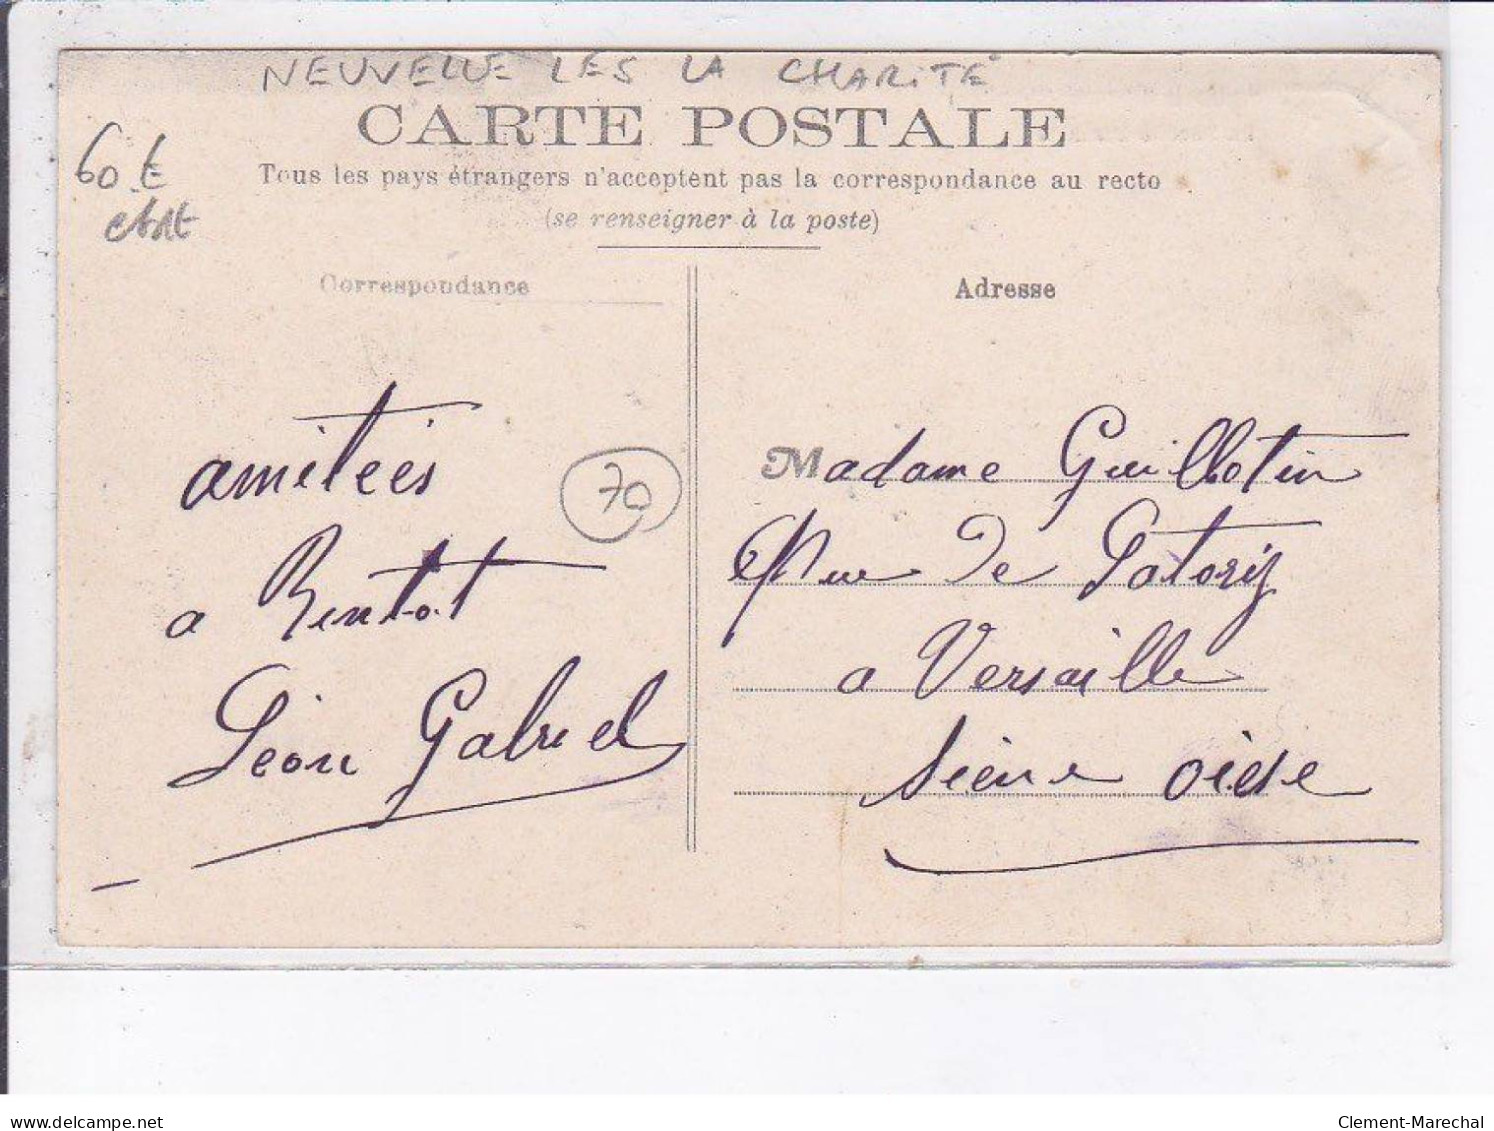 NEUVELLE LES LA CHARITÉ
CARTE POSTALE
60 €
état
Tous les pays étrangers n'acceptent pas la correspondance au recto
(se renseigner à la poste)
Correspondance
Adresse
amiteés
70
a Bentot
Léon Gabriel
Madame Guillotin
Rue De Satory
a Versaille
Seine oise
www.delcampe.net
Clement-Marechal